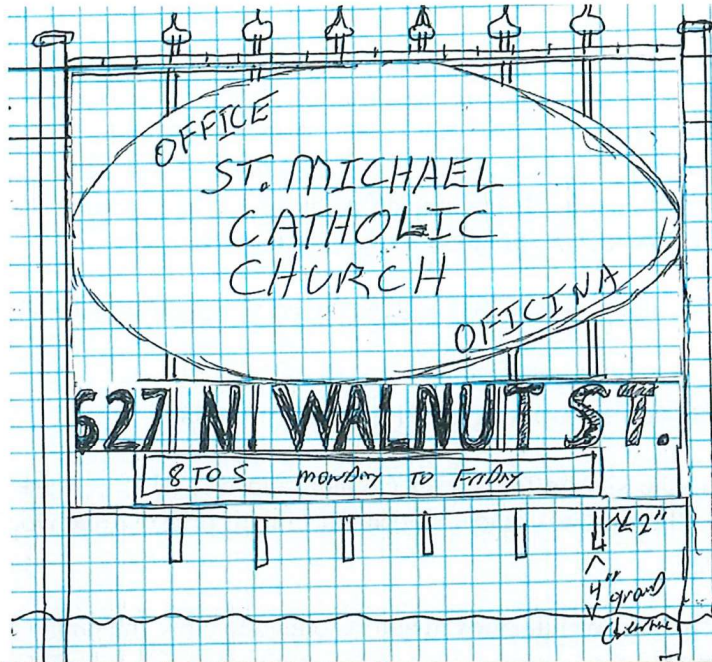 OFFICE
ST. MICHAEL
CATHOLIC
CHURCH
OFICINA
627 N. WALNUT ST.
8 TO 5 MONDAY TO FRIDAY
2"
4"